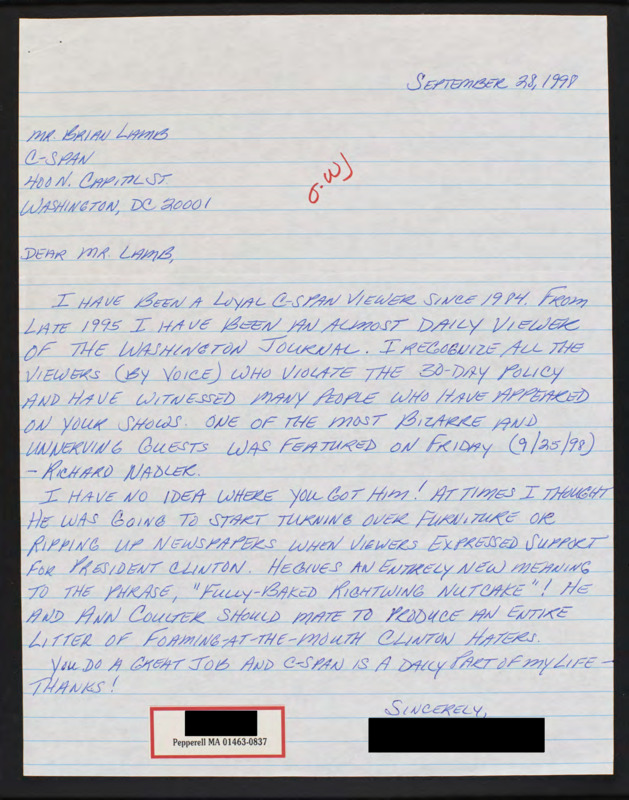 SEPTEMBER 28, 1998
MR. BRIAN LAMB
C-SPAN
400 N. CAPITAL ST.
WASHINGTON, DC 20001
DEAR MR. LAMB,
I HAVE BEEN A LOYAL C-SPAN VIEWER SINCE 1984. FROM
LATE 1995 I HAVE BEEN AN ALMOST DAILY VIEWER
OF THE WASHINGTON JOURNAL. I RECOGNIZE ALL THE
VIEWERS (BY VOICE) WHO VIOLATE THE 30-DAY POLICY
AND HAVE WITNESSED MANY PEOPLE WHO HAVE APPEARED
ON YOUR SHOWS. ONE OF THE MOST BIZARRE AND
UNNERVING GUESTS WAS FEATURED ON FRIDAY (9/25/98)
- RICHARD NADLER.
I HAVE NO IDEA WHERE YOU GOT HIM! AT TIMES I THOUGHT
HE WAS GOING TO START TURNING OVER FURNITURE OR
RIPPING UP NEWSPAPERS WHEN VIEWERS EXPRESSED SUPPORT
FOR PRESIDENT CLINTON. HE GIVES AN ENTIRELY NEW MEANING
TO THE PHRASE, "FULLY-BAKED RIGHTWING NUTCAKE"! HE
AND ANN COULTER SHOULD MATE TO PRODUCE AN ENTIRE
LITTER OF FOAMING-AT-THE-MOUTH CLINTON HATERS.
YOU DO A GREAT JOB AND C-SPAN IS A DAILY PART OF MY LIFE -
THANKS!
SINCERELY,
Pepperell MA 01463-0837